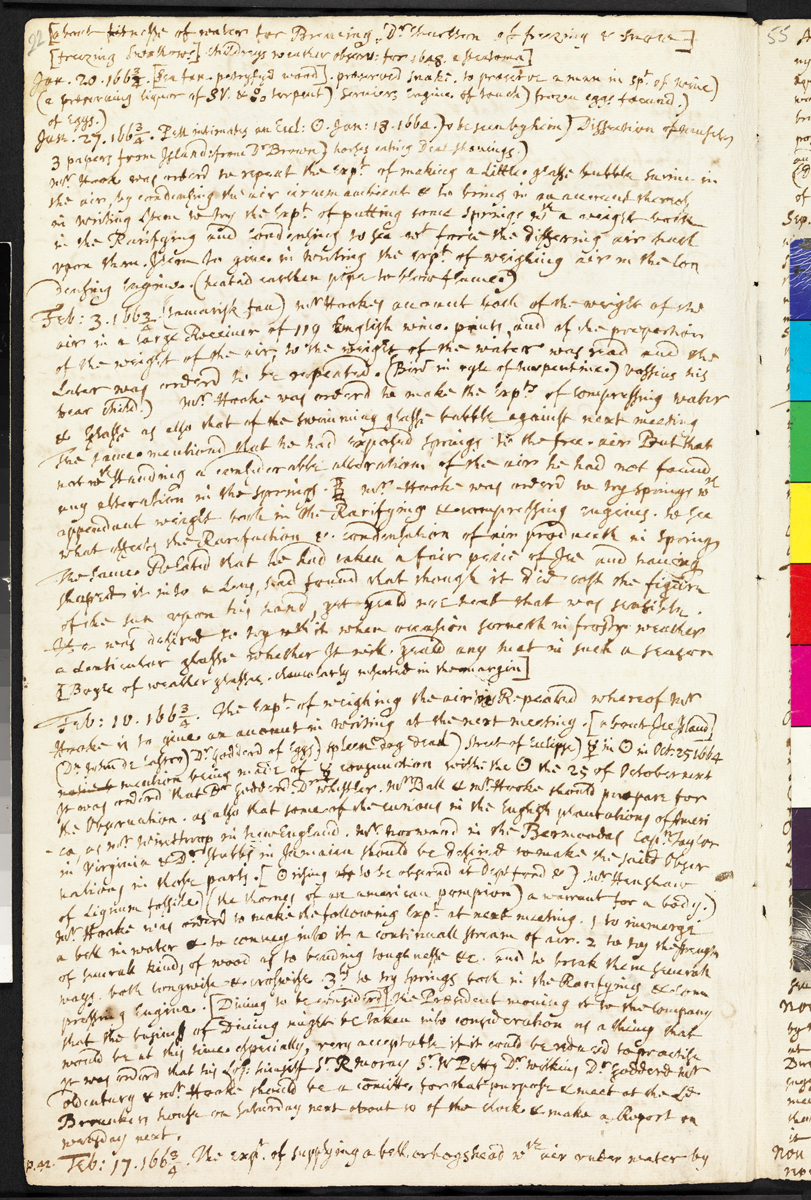 92 [about finesse of water for Brewing, Dr Thurston of freezing & snow]
[freezing swallows] childreys weather observ: for 1648. a steatoma]
Jan. 20. 166¾. [Sea fan. petrifyd wood]. preserved snake. to preserve a man in spt of wine)
(a preserving liquor of SV. & serpent) Serviers Engine of touch) frozen eggs found.)
of Eggs.)
Jan. 27. 166¾. Pell intimates an Ecl: ☉. Jan: 18. 1664.) to be seen by him) Dissection of
3 papers from Island: from Dr Brown) horses eating Deal shavings.)
Mr. Hook was orderd to repeat the Expt. of making a little glasse bubble swime in
the air, by condensing the air circumambient & to bring in an account thereof
in writing Item to try the Expt. of putting some Springs wt a weight both
in the Rarifying and Condensing to see wt force the differing air hath
upon them. Item to give in writing the expt. of weighing air in the Con
densing Engine. (heated earthen pipe to blow flame.)
Feb: 3. 166¾ (tamarisk fan) Mr Hookes account both of the weight of the
air in a large Receiver of 119 English wine pints, and of the proportion
of the weight of the air, to the weight of the water was read and the
Later was orderd to be repeated. (Bird in oyle of turpentine.) Vossius his
bear child.) Mr. Hooke was orderd to make the Expts of compressing water
& Glasse as also that of the swimming glasse bubble against next meeting
The same mentiond that he had exposed springs to the free air But that
notwthstanding a considerable alteration of the air he had not found
any alteration in the springs. Mr Hooke was orderd to try springs wth
appendant weight both in the Rarifying & compressing engines. to see
what effects the Rarifaction & condensation of air produceth in Springs
The same Related that he had taken a fair peice of Ice and having
shaped it into a Lens, had found that though it did cast the figure
of the sun upon his hand, yet yeald noe heat that was sensible.
He was desired to try when occasion serveth in frosty weather
a lenticular glasse whether it wil yeald any heat in such a season
[Boyle of weather glasses. Claricularly inserted in the margin]
Feb: 10. 166¾. The Expt. of weighing the air Repeated whereof Mr
Hooke is to give an account in writing at the next meeting. [about Ice Island]
(Dr. John de Castro) Dr. Godderd of Eggs) spleend dog dead) Street of Eclipse) ☿ in ☉ in Oct: 25 1664
mention being made of ☿ conjunction with the ☉ the 25 of October next
It was orderd that Dr Godderd. Dr Whistler. Mr Ball & Mr. Hooke should prepare for
the Observation. as also that some of the curious in the English plantations of Ameri
-ca, as Mr Winthrop in New England. Mr norwood in the Bermoodas Capt. Taylor
in Virginia & Dr Stubbs in Jamaica should be desired to make the said Obser
vations in those parts. [☉ rising to be observd at Deptford &) Mr Henshaw
of Lignum fossile) (the thornes of an american pompion) a warrant for a body.)
Mr. Hooke was orderd to make the following Expts. at next meeting. 1 to immerge
a bolt in water & to convey into it a continuall stream of air. 2 to try the strength
of severall kinds of wood as to bending toughnesse &c. and to break them severall
ways. both longwise & crosswise. 3d to try Springs both in the Rarifying & Com
pressing Engine. [Diving to be considered] the President moving it to the company
that the busines of Diving might be taken into consideration as a thing that
would be at this time especially, very acceptable if it could be reduced to practise
It was orderd that his Lp: himself Sr. R Moray Sr. W Petty Dr. Wilkins Dr. Godderd Mr
Oldenburg & Mr. Hooke should be a comitte for that purpose & meet at the Ld
Brounkers house on Saturday next about 10 of the clock & make a Report on
wensday next.
p. 42. Feb: 17. 166¾. The Expt. of supplying a bolt or hogshead wth air under water by
55